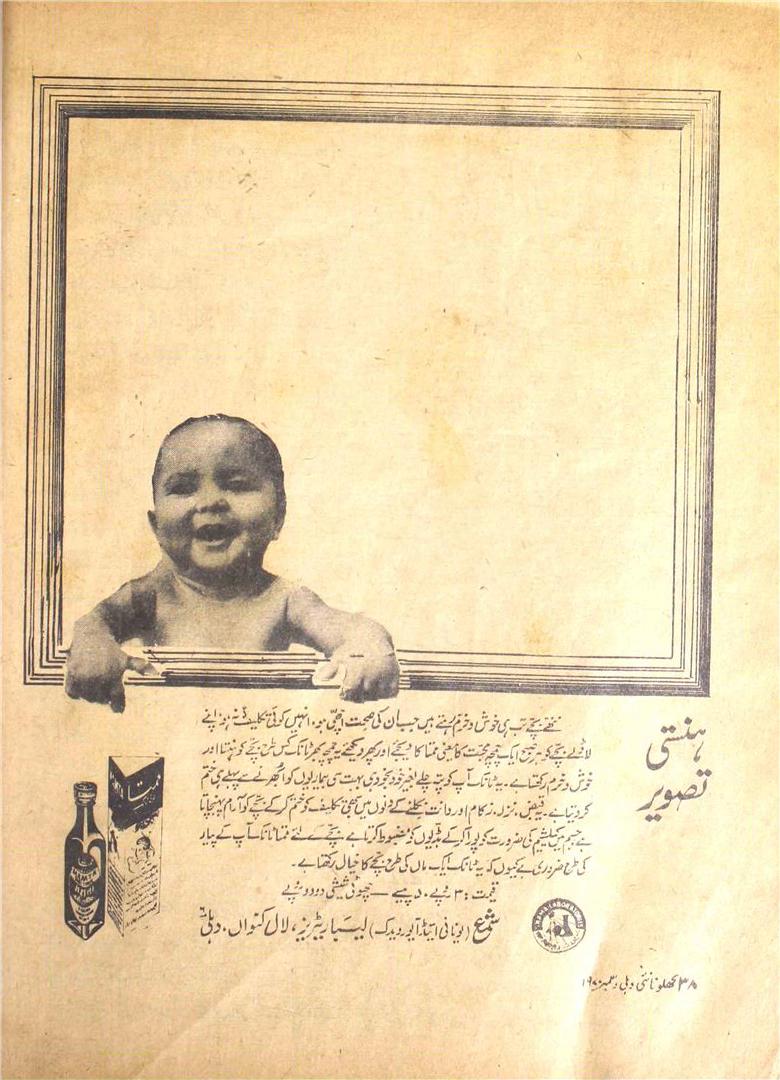 ہنستی
تصویر
ننھے بچے تب ہی خوش و خرم رہتے ہیں جب ان کی صحت اچھی ہو، انہیں کوئی تکلیف نہ ہو، اپنے
لاڈلے بچے کو ہر صبح ایک چمچہ محبت کا یعنی ممتا کا دیجئے اور پھر دیکھئے یہ چمچہ بھر ٹانک کس طرح بچے کو ہنستا اور
خوش و خرم رکھتا ہے۔ یہ ٹانک آپ کو پتہ چلے بغیر خود بخود ہی بہت سی بیماریوں کو ابھرنے سے پہلے ہی ختم
کر دیتا ہے۔ قبض، نزلہ، زکام اور دانت نکلنے کے دنوں میں بھی تکلیف کو ختم کر کے بچے کو آرام پہنچاتا
ہے جسم میں کیلشیم کی ضرورت کو پورا کر کے ہڈیوں کو مضبوط کرتا ہے بچے کے لئے ممتا ٹانک آپ کے پیار
کی طرح ضروری ہے کیوں کہ یہ ٹانک ایک ماں کی طرح بچے کا خیال رکھتا ہے۔
قیمت: ۳ روپے ۵۰ پیسے — چھوٹی شیشی دو روپے
شمع (یونانی اینڈ آیورویدک) لیباریٹریز، لال کنواں، دہلی ۶
ممتا
۳۸ کھلونا نئی دہلی دسمبر ۱۹۷۰